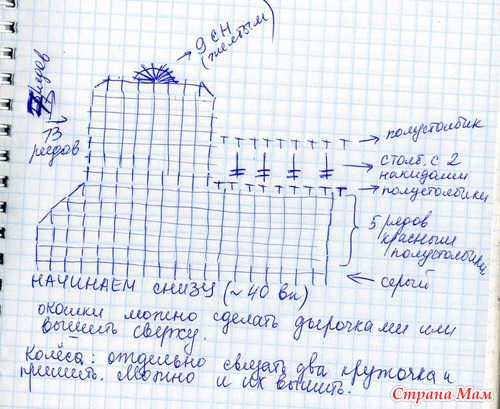 9 СН
(желтым)
рядов
13
рядов
полустолбик
столб. с 2
накидами
полустолбики
5 рядов
красным
полустолбики
серый
НАЧИНАЕМ СНИЗУ (~40 вп)
окошки можно сделать дырочками или
вышить сверху.
Колёса: отдельно связать два кружочка и
пришить. Можно и их вышить.
Страна Мам